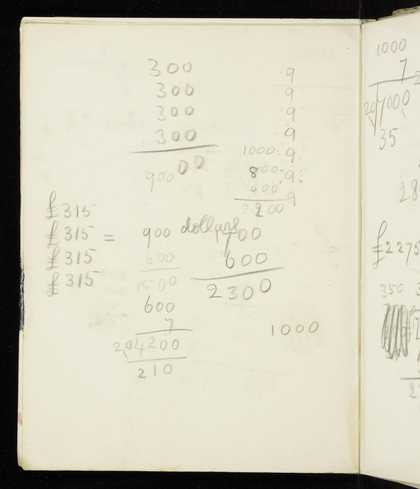 300
300
300
300
900 00
9
9
9
9
1000 9
800 9
600 9
2200
£315
£315 = 900 dollars 1700
£315 600 600
£315 1500 2300
600
7 1000
20 4200
210
1000
7
20 7000
35
28
£2275
350